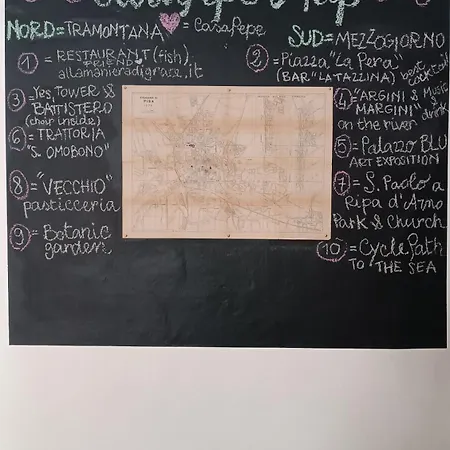 Map
NORD=TRAMONTANA = CasaPepe
SUD=MEZZOGIORNO
1 = RESTAURANT (fish)
FRIEND
allamanieradigrase.it
2 = Piazza "La Pera"
(BAR "LA TAZZINA) best cocktail
3 = Yes, TOWER &
BATTISTERO
(choir inside)
4 = "ARGINI & Music
MARGINI" drink
on the river
5 = Palazzo BLU
ART EXPOSITION
6 = TRATTORIA
"S. OMOBONO"
7 = S. Paolo a
Ripa d'Arno
Park & Church
8 = "VECCHIO"
pasticceria
9 = Botanic
garden
10 = Cycle Path
TO THE SEA
PISA